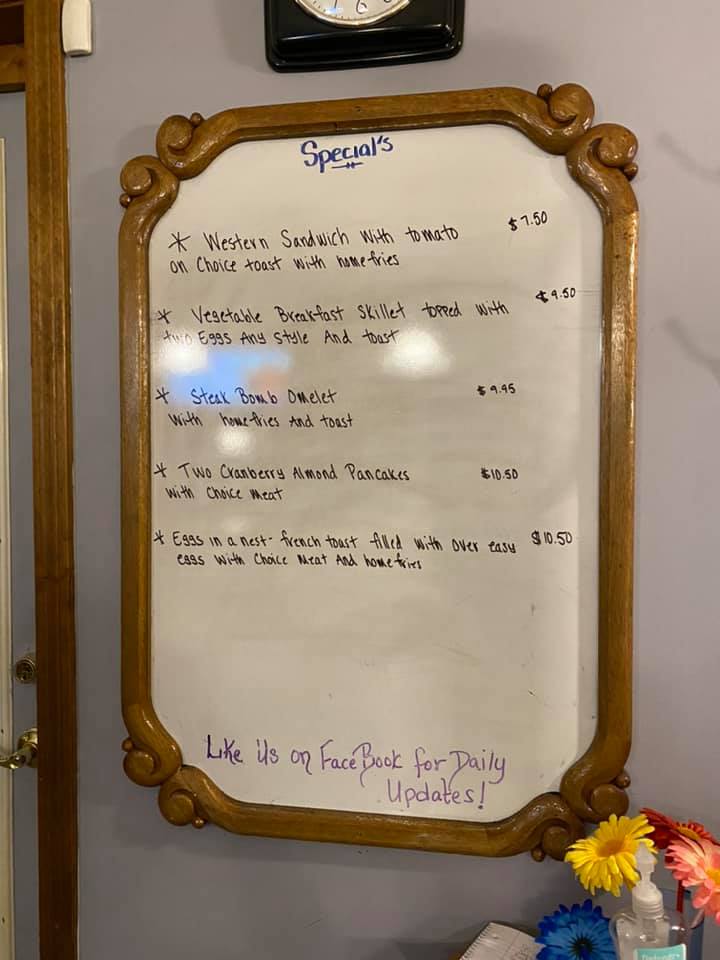 Special's
* Western Sandwich With tomato $7.50
on Choice toast with homefries
* Vegetable Breakfast Skillet topped with $9.50
two Eggs Any Style And toast
* Steak Bomb Omelet $9.95
with homefries And toast
* Two Cranberry Almond Pancakes $10.50
with Choice Meat
* Eggs in a nest- french toast filled with over easy $10.50
eggs with Choice Meat And homefries
Like Us on FaceBook for Daily
Updates!